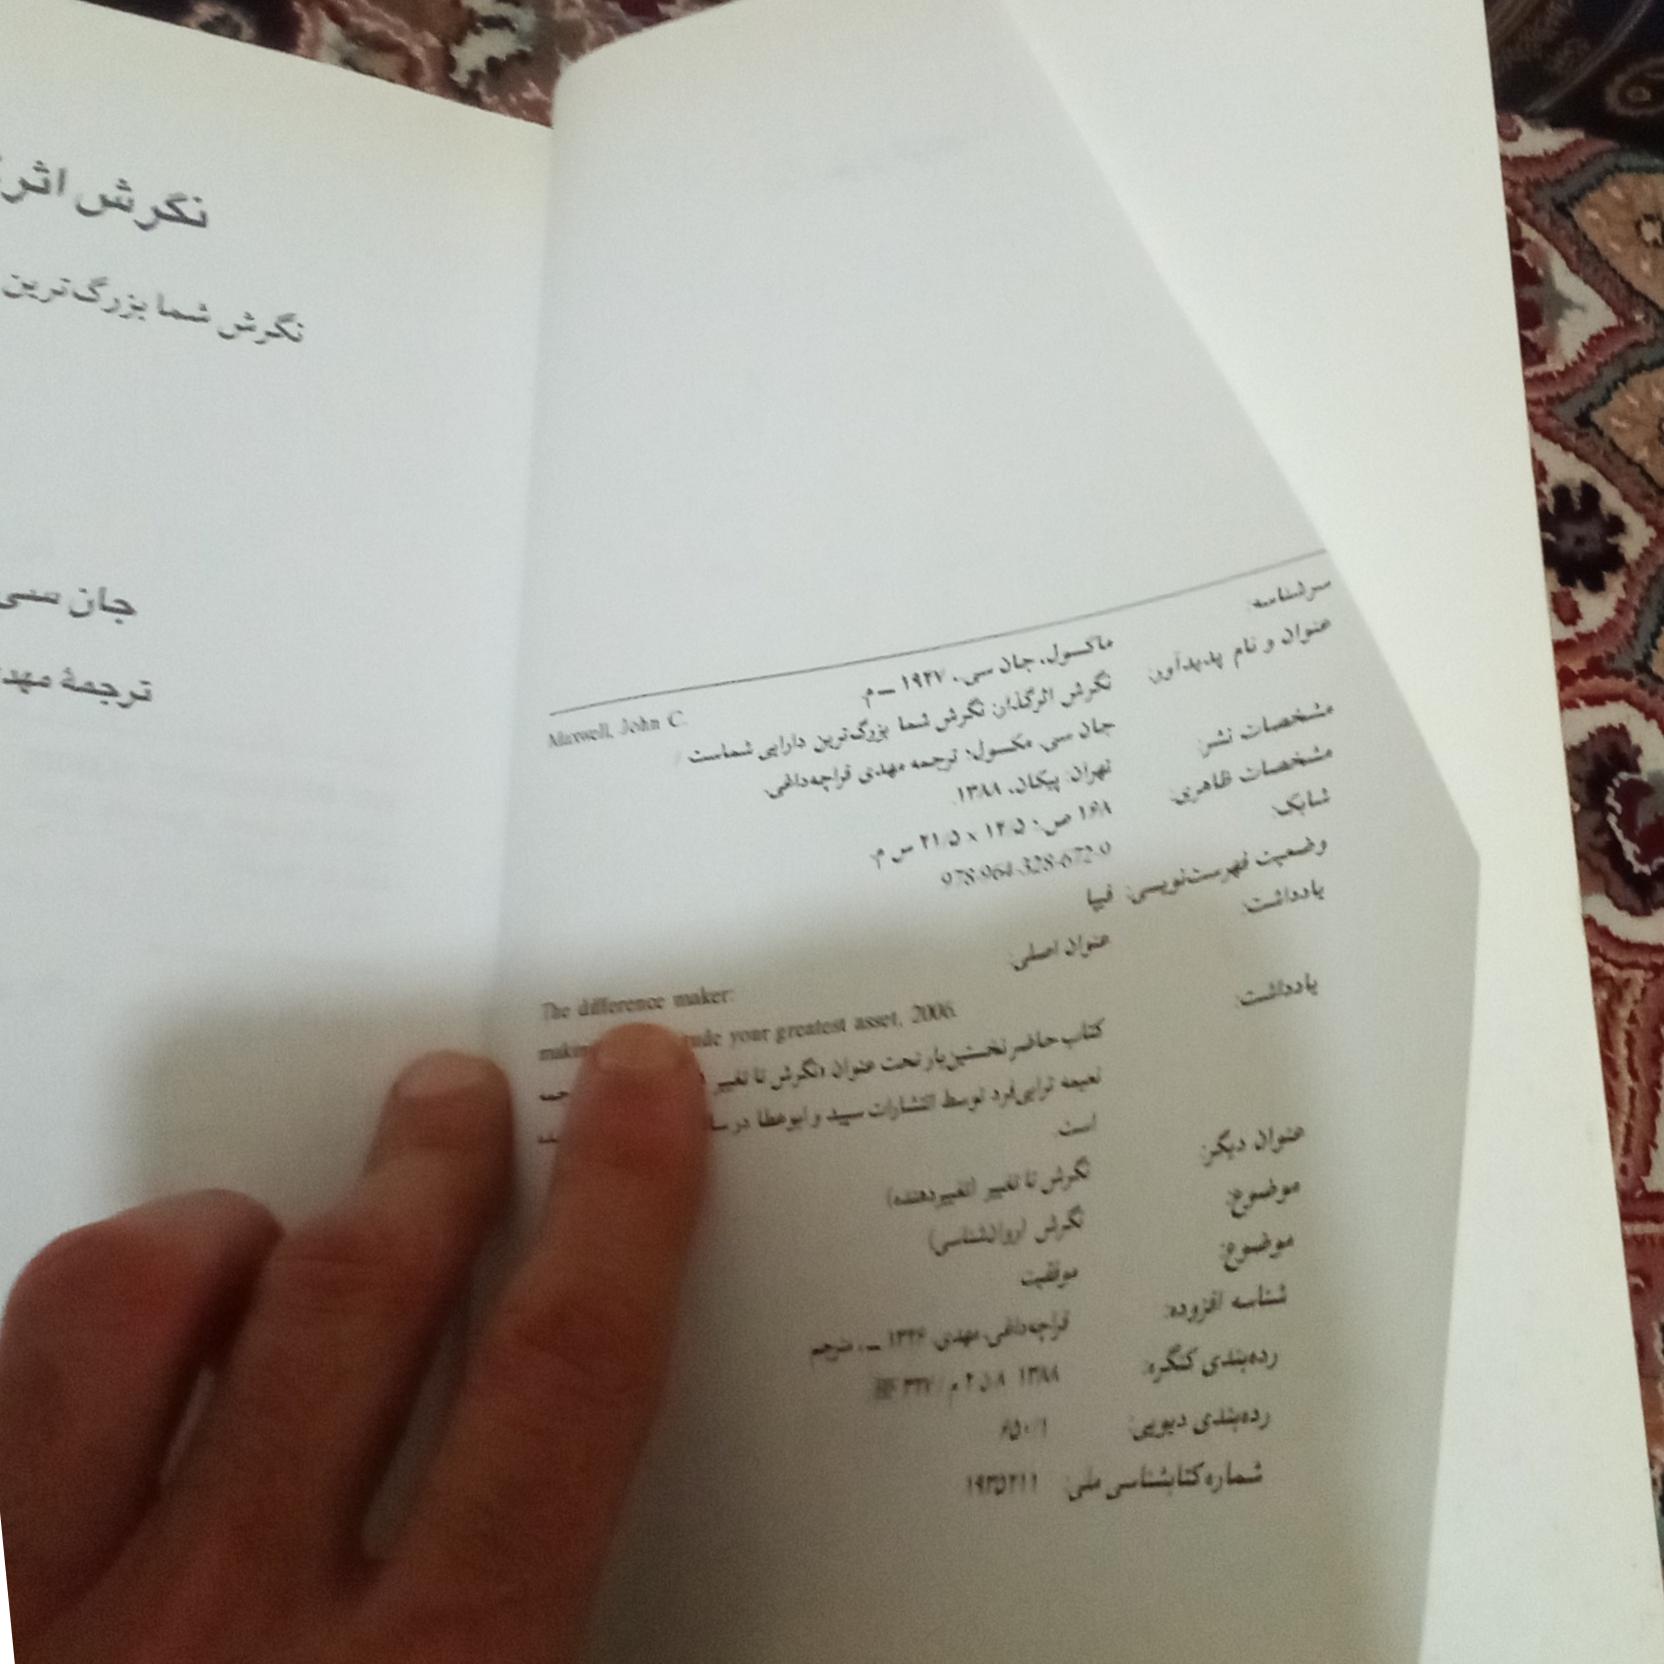 نگرش اثر
نگرش شما بزرگ‌ترین
جان سی
ترجمهٔ مهد
سرشناسه:
ماکسول، جان سی، ۱۹۴۷ – م.
Maxwell, John C.
عنوان و نام پدیدآور:
نگرش اثرگذار: نگرش شما بزرگ‌ترین دارایی شماست /
جان سی. مکسول؛ ترجمه مهدی قراچه‌داغی.
مشخصات نشر:
تهران: پیکان، ۱۳۸۸.
مشخصات ظاهری:
۱۶۸ ص.؛ ۱۴/۵ × ۲۱/۵ س م.
شابک:
978-964-328-672-9
وضعیت فهرست‌نویسی: فیپا
یادداشت:
عنوان اصلی:
The difference maker:
your greatest asset, 2006.
یادداشت:
کتاب حاضر نخستین‌بار تحت عنوان «نگرش تا تغییر
نعیمه ترابی‌فرد توسط انتشارات سپید و ابوعطا در
است
عنوان دیگر:
نگرش تا تغییر (تغییردهنده)
موضوع:
نگرش (روان‌شناسی)
موضوع:
موفقیت
شناسه افزوده:
قراچه‌داغی، مهدی، ۱۳۲۶ –، مترجم
رده‌بندی کنگره:
رده‌بندی دیویی:
۶۵۰/۱
شماره کتابشناسی ملی: